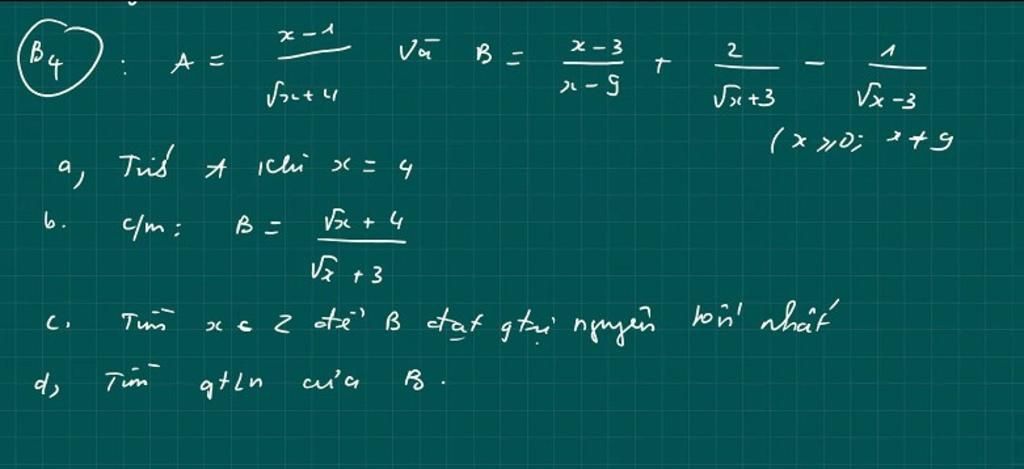 B4 : A = x - 1 / √x + 4 Và B = x - 3 / x - 9 + 2 / √x + 3 - 1 / √x - 3
(x ≥ 0; x ≠ 9
a, Tính A khi x = 4
b. c/m: B = √x + 4 / √x + 3
c. Tìm x ∈ Z để B đạt gtrị nguyên lớn nhất
d, Tìm gtln của B.